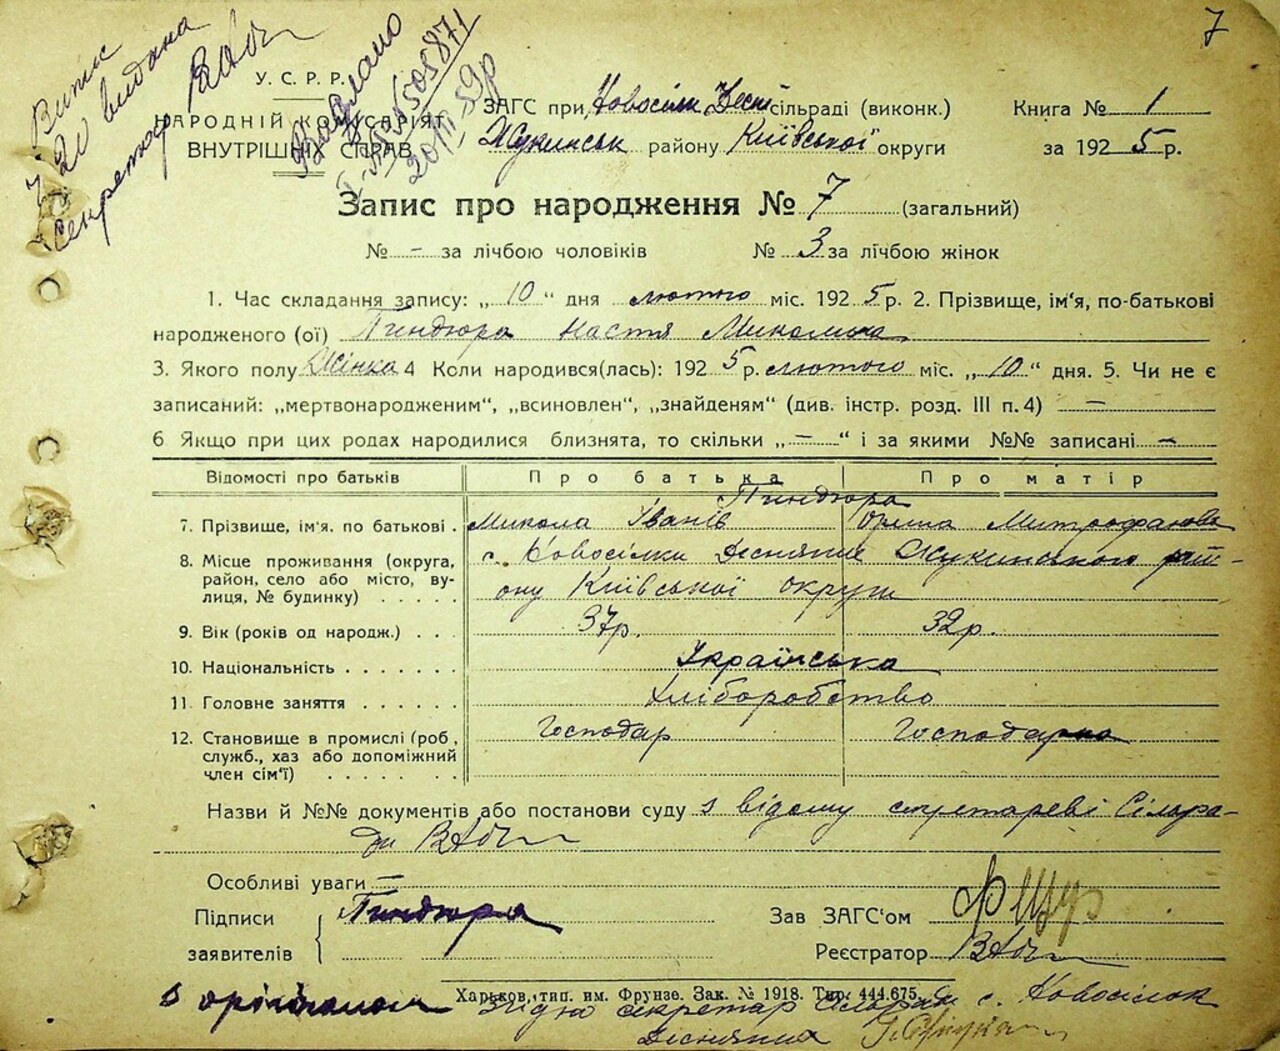 Витяг
з 20 видана
секретар
Видано
20/III 59р
7
У. С. Р. Р.
НАРОДНІЙ КОМІСАРІЯТ
ВНУТРІШНІХ СПРАВ
ЗАГС при Новосілк Десн сільраді (виконк.)
Жукинськ району Київської округи
Книга № 1
за 1925 р.
Запис про народження № 7 (загальний)
№ - за лічбою чоловіків № 3 за лічбою жінок
1. Час складання запису: „10“ дня лютого міс. 1925 р. 2. Прізвище, ім'я, по-батькові
народженого (ої) Пиндюра Настя Миколівна
3. Якого полу Жінка 4 Коли народився(лась): 1925 р. лютого міс. „10“ дня. 5. Чи не є
записаний: „мертвонародженим“, „всиновлен“, „знайденям“ (див. інстр. розд. III п. 4) —
6 Якщо при цих родах народилися близнята, то скільки „—“ і за якими №№ записані —
Відомості про батьків Про батька Про матір
Пиндюра
7. Прізвище, ім'я. по батькові . Микола Іванів Орина Митрофанова
8. Місце проживання (округа, с. Новосілки Десняние Жукинського рай-
район, село або місто, ву-
лиця, № будинку) . . . . . ону Київської округи
9. Вік (років од народж.) . . . 37р. 32р.
10. Національність . . . . . . . Українська
11. Головне заняття . . . . . . Хліборобство
12. Становище в промислі (роб, Господар Господарка
служб., хаз або допоміжний
член сім'ї) . . . . . . .
Назви й №№ документів або постанови суду з відому секретареві Сільра-
ди
Особливі уваги —
Підписи
заявителів
Пиндюра
Зав ЗАГС'ом
Реєстратор
Харьков, тип. им. Фрунзе. Зак. № 1918. Тир. 444.675.
з оригіналом згідно секретар Сільради с. Новосілок
Десняния